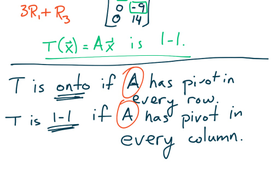 3R₁ + R₃
0 -9
0 14
T(x⃗) = Ax⃗ is 1-1.
T is onto if A has pivot in
every row.
T is 1-1 if A has pivot in
every column.